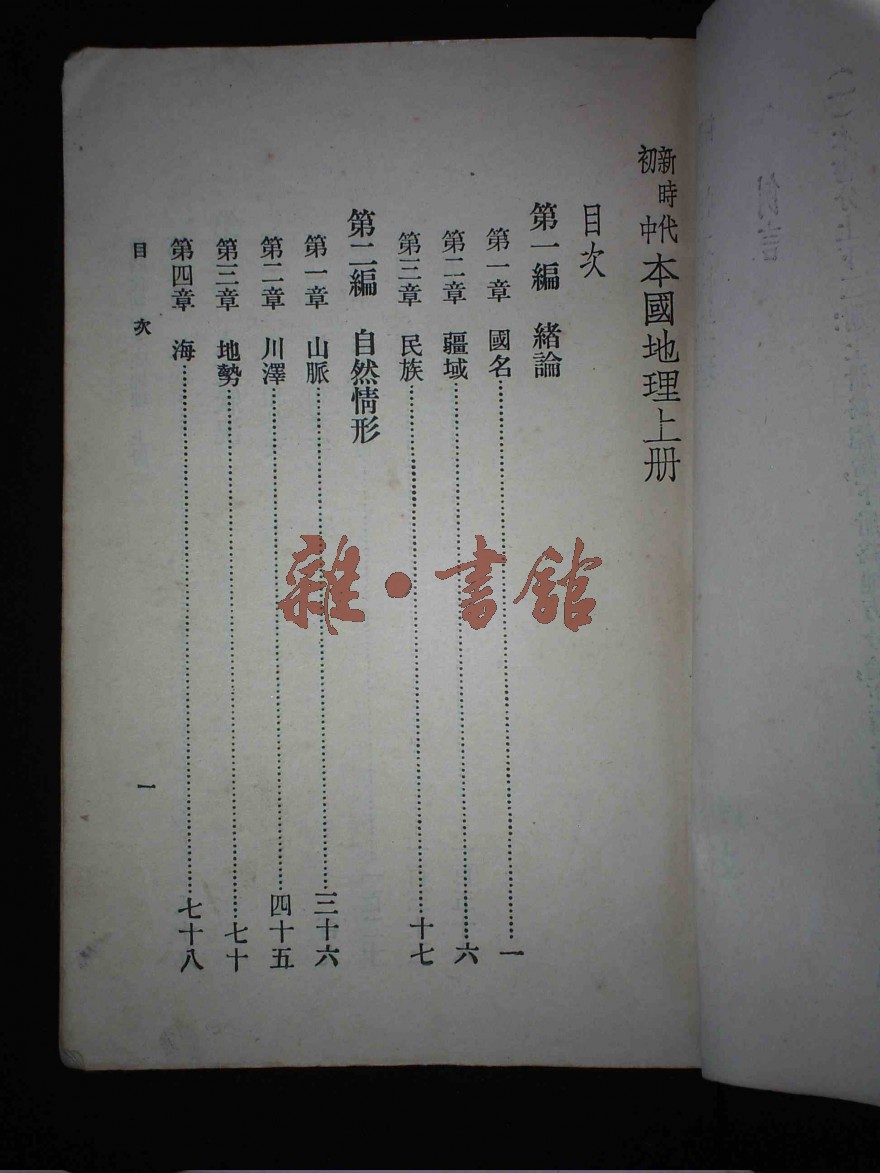 新時代初中本國地理上册
目次
第一編 緒論
第一章 國名……一
第二章 疆域……六
第三章 民族……十七
第二編 自然情形
第一章 山脈……三十六
第二章 川澤……四十五
第三章 地勢……七十
第四章 海……七十八
目次 一
雜·書館
例言